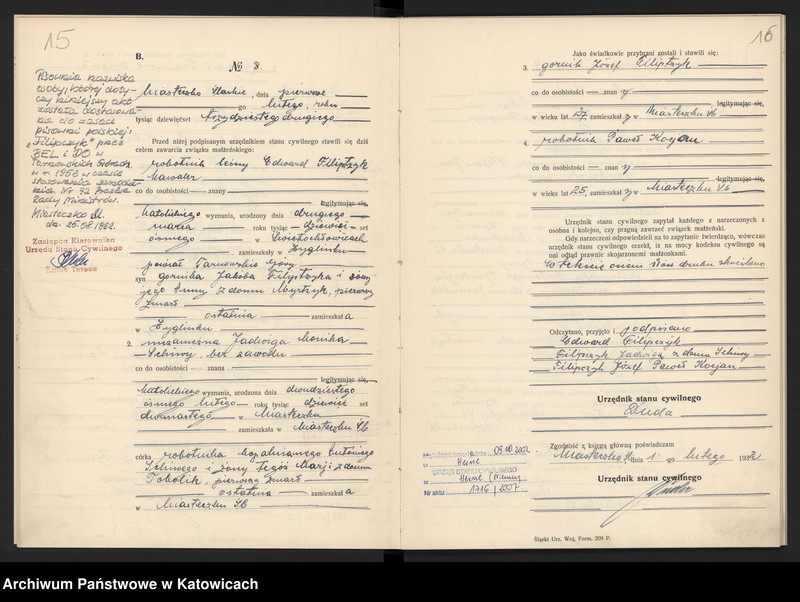 15
B.
№ 8.
Pisownia nazwiska
osoby, której doty-
czy niniejszy akt
została dostosowa-
na do zasad
pisowni polskiej:
„Filipczyk" przez
w r. 1952 w czasie
Rady Ministrów.
Miasteczko Śl.
Zastępca Kierownika
Urzędu Stanu Cywilnego
Teresa
Miasteczko Śląskie, dnia pierwszego
go lutego, roku
tysiąc dziewięćset trzydziestego drugiego
Przed niżej podpisanym urzędnikiem stanu cywilnego stawili się dziś
celem zawarcia związku małżeńskiego:
robotnik leśny Edward Filipczyk
kawaler
co do osobistości — znany
legitymując się,
katolickiego wyznania, urodzony dnia drugiego
marca — roku tysiąc dziewięć set
ósmego — w Świętochłowicach
zamieszkały w Żyglinku
powiat Tarnowskie Góry
syn górnika Jakóba i żony
jego Anny z domu pierwszy
zmarł
ostatnia — zamieszkała
w Żyglinku
2. niezamężna Jadwiga Monika
bez zawodu
co do osobistości — znana
legitymując się,
katolickiego wyznania, urodzona dnia dwudziestego
ósmego lutego — roku tysiąc dziewięć set
dwunastego — w Miasteczku
zamieszkała w Miasteczku Śl.
córka robotnika Antoniego
i żony tegoż Marji z domu
Tobolik, pierwszy zmarł
ostatnia — zamieszkała
w Miasteczku Śl.
16
Jako świadkowie przybrani zostali i stawili się:
3. górnik Józef Filipczyk
co do osobistości — znany
legitymując się,
w wieku lat 27, zamieszkały w Miasteczku Śl.
4. robotnik Paweł Kocjan
co do osobistości — znany
legitymując się,
w wieku lat 25, zamieszkały w Miasteczku Śl.
Urzędnik stanu cywilnego zapytał każdego z narzeczonych z
osobna i kolejno, czy pragną zawrzeć związek małżeński.
Gdy narzeczeni odpowiedzieli na to zapytanie twierdząco, wówczas
urzędnik stanu cywilnego orzekł, iż na mocy kodeksu cywilnego są
oni odtąd prawnie skojarzonemi małżonkami.
druku skreślono
Odczytano, przyjęto i podpisano
Edward Filipczyk
Filipczyk Jadwiga z domu
Filipczyk Józef Paweł Kocjan
Urzędnik stanu cywilnego
Duda
Zgodność z księgą główną poświadczam
Miasteczko Śl., dnia 1. go lutego 1932
Urzędnik stanu cywilnego
09.10.2007
w Herne
URZĄD STANU CYWILNEGO
w Herne (Niemcy)
Nr aktu 1716/2007
Śląski Urz. Woj. Form. 200 P.
Archiwum Państwowe w Katowicach